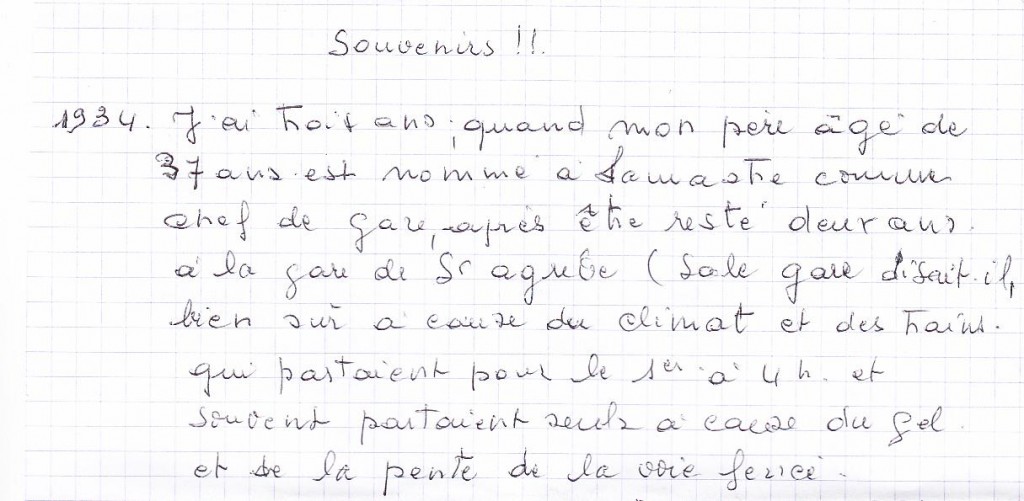 Souvenirs !!.
1934. J'ai trois ans, quand mon père âgé de
37 ans est nommé à Lamastre comme
chef de gare, après être resté deux ans.
à la gare de St agrève (Sale gare disait-il,
bien sûr à cause du climat et des trains.
qui partaient pour le 1er à 4 h. et
souvent partaient seuls à cause du gel.
et de la pente de la voie ferrée.